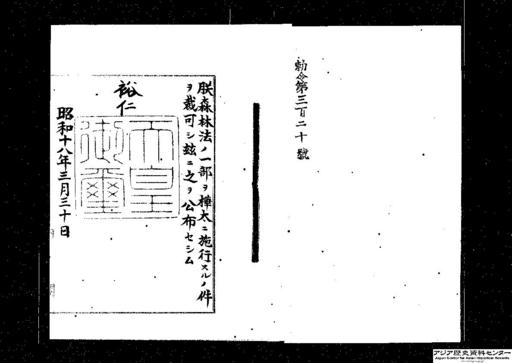 勅令第三百二十號
朕森林法ノ一部ヲ樺太ニ施行スルノ件
ヲ裁可シ茲ニ之ヲ公布セシム
裕仁
天皇
御璽
昭和十八年三月三十日
アジア歴史資料センター
Japan Center for Asian Historical Records